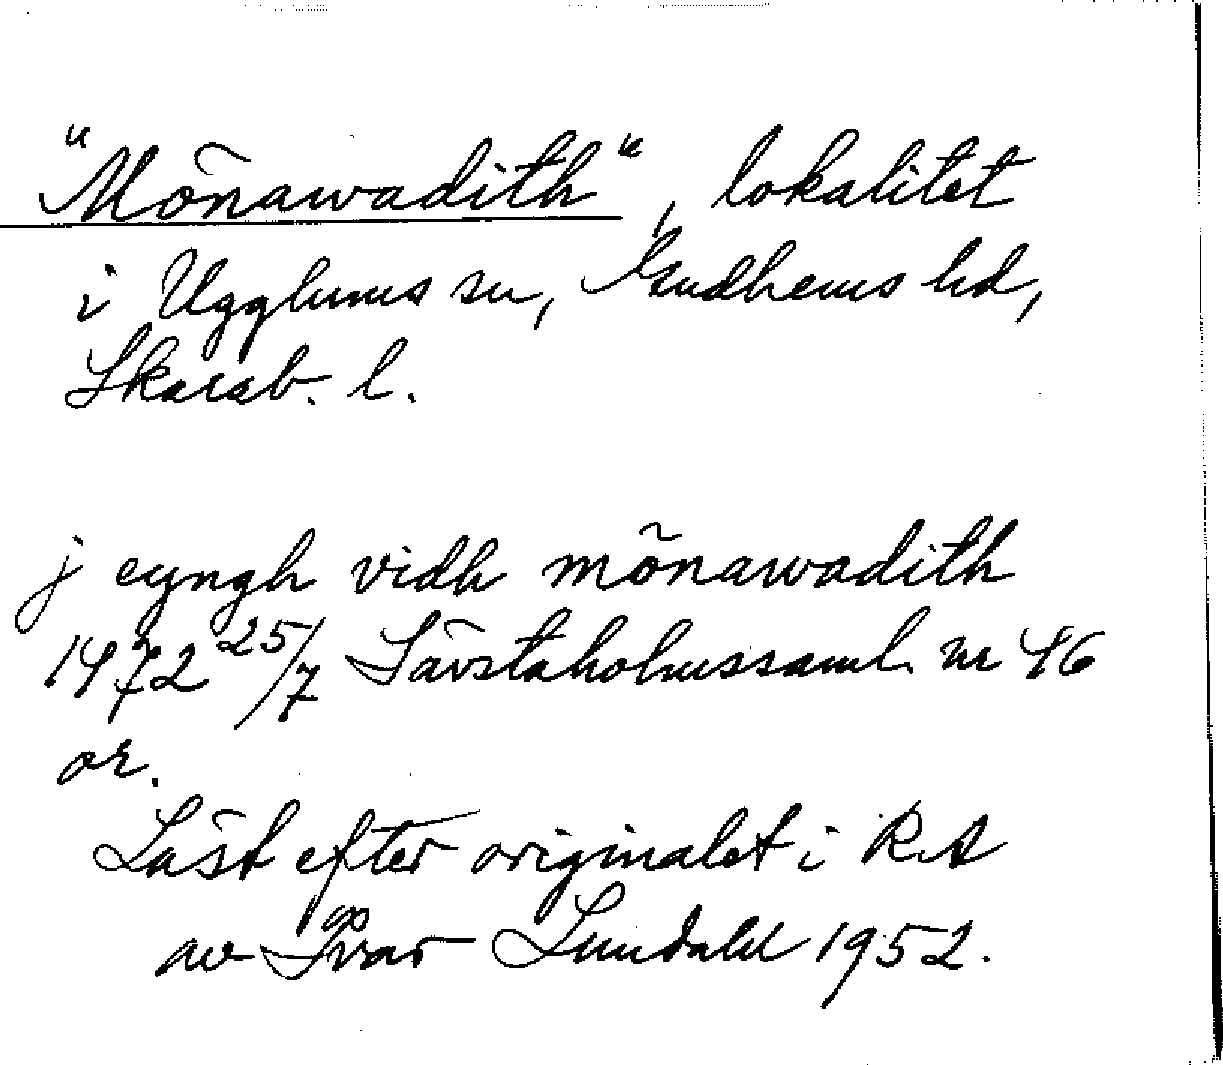 "Mōnawadith", lokalitet
i Ugglums sn, Gudhems hd,
Skarab. l.
j eyngh vidh mõnawadith
1472 25/7 Sävstaholmssaml. nr 46
or.
Läst efter originalet i RA
av Ivar Lundahl 1952.